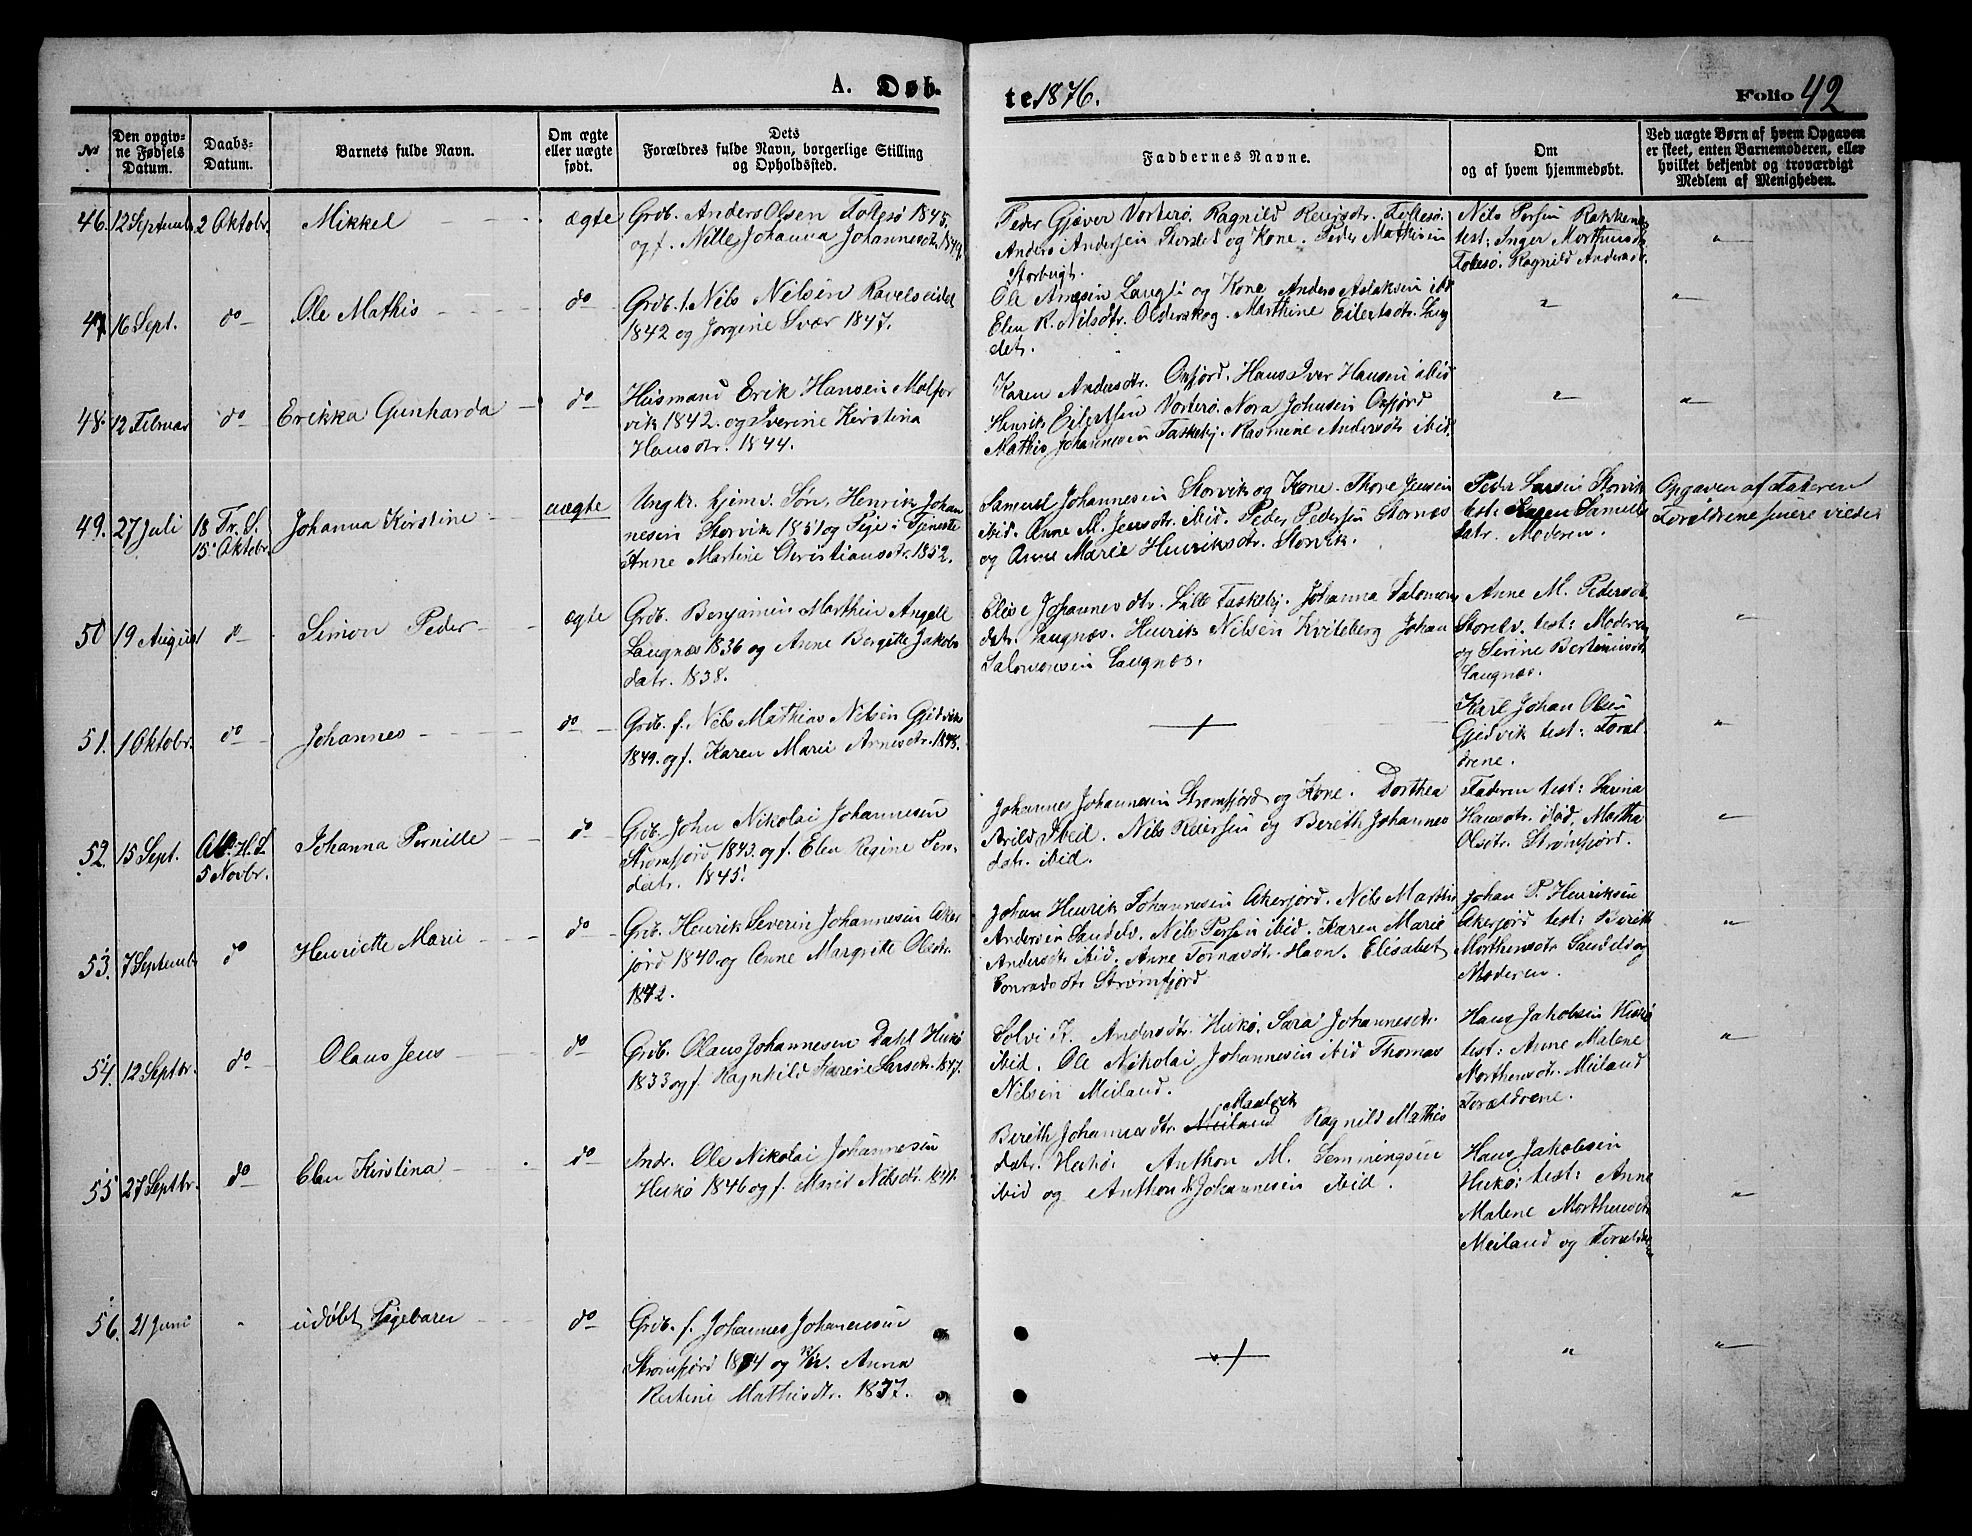 A. Døb-
te 1876.
Folio 42
No.
Den opgiv-
ne Fødsels
Datum.
Daabs-
Datum.
Barnets fulde Navn.
Om ægte
eller uægte
født.
Dets
Forældres fulde Navn, borgerlige Stilling
og Opholdssted.
Faddernes Navne.
Om
og af hvem hjemmedøbt.
Ved uægte Børn af hvem Opgaven
er skeet, enten Barnemoderen, eller
hvilket bekjendt og troværdigt
Medlem af Menigheden.
46. 12 Septemb. 2 Oktobr. Mikkel ægte
Grdb. Anders Olsen 1845,
og f. Nille Johanna Johannesdtr. 1849.
Peder Gjøver Vorterø. Ragnild Reiersdtr.
Anders Andersen Storslet og Kone. Peder Mathisen
Storbugt.
Nils Persen Rakkenes
test: Inger Morthensdtr.
Ragnild Andersdtr.
"
47 16 Sept. do Ole Mathis do
Grdb. f. Nils Nilsen Ravelseidet
1842 og Jørgine Svær 1847.
Ole Arnesen Laugli og Kone Anders Aslaksen ibd
Elen R. Nilsdtr. Olderskog. Marthine Eilertsdtr. Lang
det.
"
"
48. 12 Februar do Erikka Gunharda do
Husmand Erik Hansen Molfor
vik 1842. og Iverine Kirstina
Hansdtr. 1844.
Karen Andersdtr. Oxfjord. Hans Iver Hansen ibid
Henrik Eilertsen Vorterø. Nora Johnsen Oxfjord
Mathis Johannesen Taskeby. Rasmene Andersdtr ibid.
"
"
49. 27 Juli 18 Tr. S.
15 Oktobr. Johanna Kirstine uægte
Ungk. hjemv. Søn, Henrik Johan
nesen Storvik 1851 og Pige i Tjeneste
Anne Martine Christiansdtr. 1852.
Samuel Johannesen Storvik og Kone. Thore Jensen
ibid. Anne M. Jensdtr. ibid. Peder Pedersen Stornæs
og Anne Marie Henriksdtr. Storvik.
Peder Larsen Storvik
test: Karen Samuels
datr. Moderen.
Opgaven af Faderen
Forældrene senere viede
50 19 August do Simon Peder ægte
Grdb. Benjamin Marthin Angell
Laugnæs 1836 og Anne Bergitte Jakobs
datr. 1838.
Elise Johannesdtr. Lille Taskeby. Johanna Salomons
datr. Laugnæs. Henrik Nilsen Kviteberg Johan
Salomonsen Laugnæs.
Anne M. Pedersdtr
Storelv. test: Moderen
og Serine Bertinusdtr.
Laugnæs.
"
51. 1 Oktobr. do Johannes do
Grdb. f. Nils Mathias Nilsen Gjedvik
1849. og f. Karen Marie Arnesdtr. 1848.
Karl Johan Olsen
Gjedvik test: Foræl-
drene.
"
52. 15 Sept. All. H. D.
5 Novbr. Johanna Pernille do
Grdb. John Nikolai Johannesen
Strømfjord 1843. og f. Elen Regine Jens
datr. 1845.
Johannes Johannesen Strømfjord og Kone. Dorthea
Arild ibid. Nils Reiersen og Bereth Johannes
datr. ibid.
Faderen test: Larina
Hansdtr. ibid, Martha
Olsdtr. Strømfjord.
"
53. 7 Septemb. do Henriette Marie do
Grdb. Henrik Severin Johannesen Aker
fjord 1840. og Anne Margritte Olsdtr.
1842.
Johan Henrik Johannesen Akerfjord. Nils Marthin
Andersen Sandelv. Nils Persen ibid. Karen Marie
Andersdtr ibid. Anne Tomasdtr. Havn. Elisabet
Conradsdtr Strømfjord
Johan P. Henriksen
Akerfjord test: Berith
Morthensdtr Sandelv og
Moderen.
"
54. 12 Septbr. do Olaus Jens do
Grdb. Olaus Johannesen Dahl Hukø
1833 og f. Ragnhild Karine Larsdtr. 1847.
Solvi K. Andersdtr. Hukø. Sara Johannesdtr.
ibid. Ole Nikolai Johannesen ibid Thomas
Nilsen Meiland.
Hans Jakobsen Hukø
test: Anne Malene
Morthensdtr. Meiland
Forældrene.
"
55 27 Septbr. do Elen Kirstina do
Indr. Ole Nikolai Johannesen
Hukø 1846 og f. Marit Nilsdtr.
Maalvik
Bereth Johannesdtr. Meiland Ragnild Mathis
datr. Hukø. Anthon M. Semmingsen
ibid og Anthon Johannesen ibid.
Hans Jakobsen
Hukø: test: Anne
Malene Morthensdtr
Meiland og Forældrene
"
56. 21 Juni " udøbt Pigebarn do
Grdb. f. Johannes Johannesen
Strømfjord 1834 og Anna
Kirstine Mathisdtr. 1837.
"
"